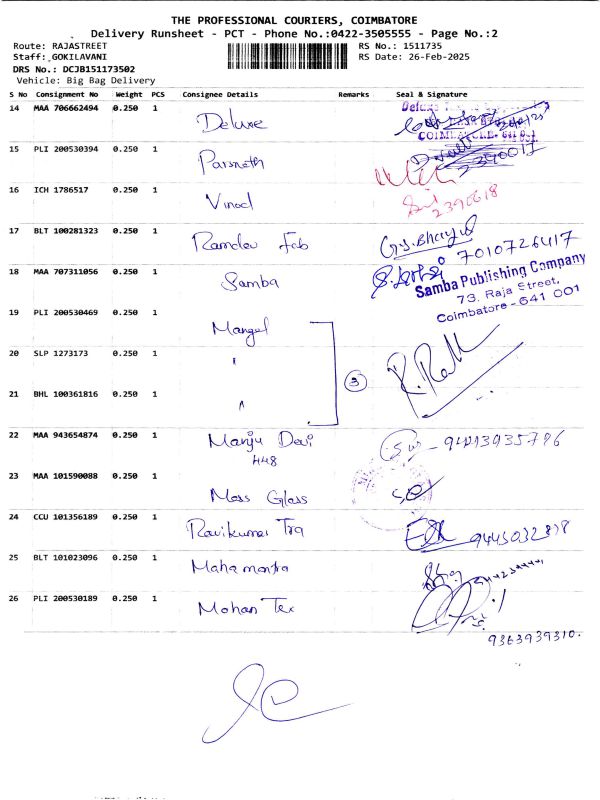 THE PROFESSIONAL COURIERS, COIMBATORE
Delivery Runsheet - PCT - Phone No.:0422-3505555 - Page No.:2
Route: RAJASTREET RS No.: 1511735
Staff: GOKILAVANI RS Date: 26-Feb-2025
DRS No.: DCJB151173502
Vehicle: Big Bag Delivery
S No Consignment No Weight PCS Consignee Details Remarks Seal & Signature
14 MAA 706662494 0.250 1 Deluxe
COIMBATORE - 641 001
15 PLI 200530394 0.250 1 Parsnath 2390017
16 ICH 1786517 0.250 1 Vinod 2390618
17 BLT 100281323 0.250 1 Ramdev Fab 7010726417
18 MAA 707311056 0.250 1 Samba
Samba Publishing Company
73, Raja Street,
Coimbatore - 641 001
19 PLI 200530469 0.250 1 Mangal
20 SLP 1273173 0.250 1 " 3
21 BHL 100361816 0.250 1 "
22 MAA 943654874 0.250 1 Manju Devi
448
23 MAA 101590088 0.250 1 Moss Glass
24 CCU 101356189 0.250 1 Ravikumar Tra
25 BLT 101023096 0.250 1 Mahamantra
26 PLI 200530189 0.250 1 Mohan Tex
9363939310.